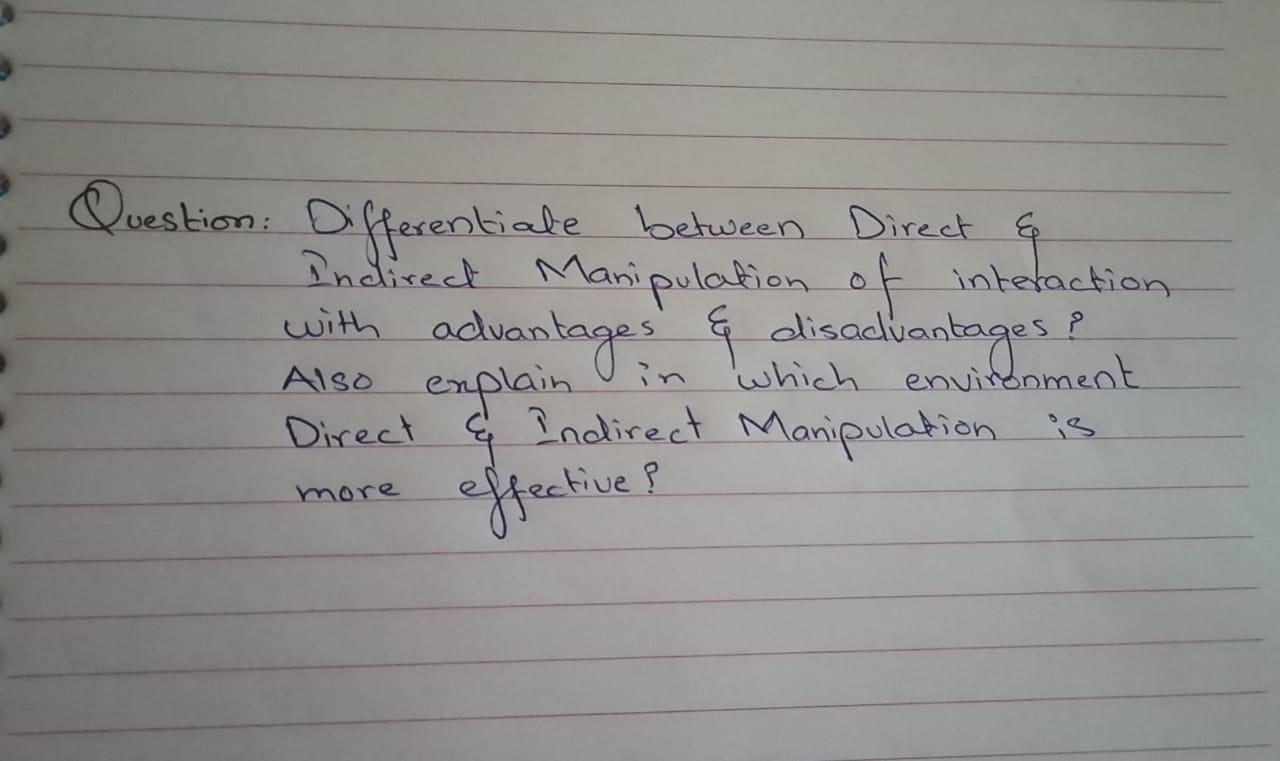 Question: Differentiate between Direct &
Indirect Manipulation of interaction
with advantages & disadvantages?
Also explain in which environment
Direct & Indirect Manipulation is
more effective?